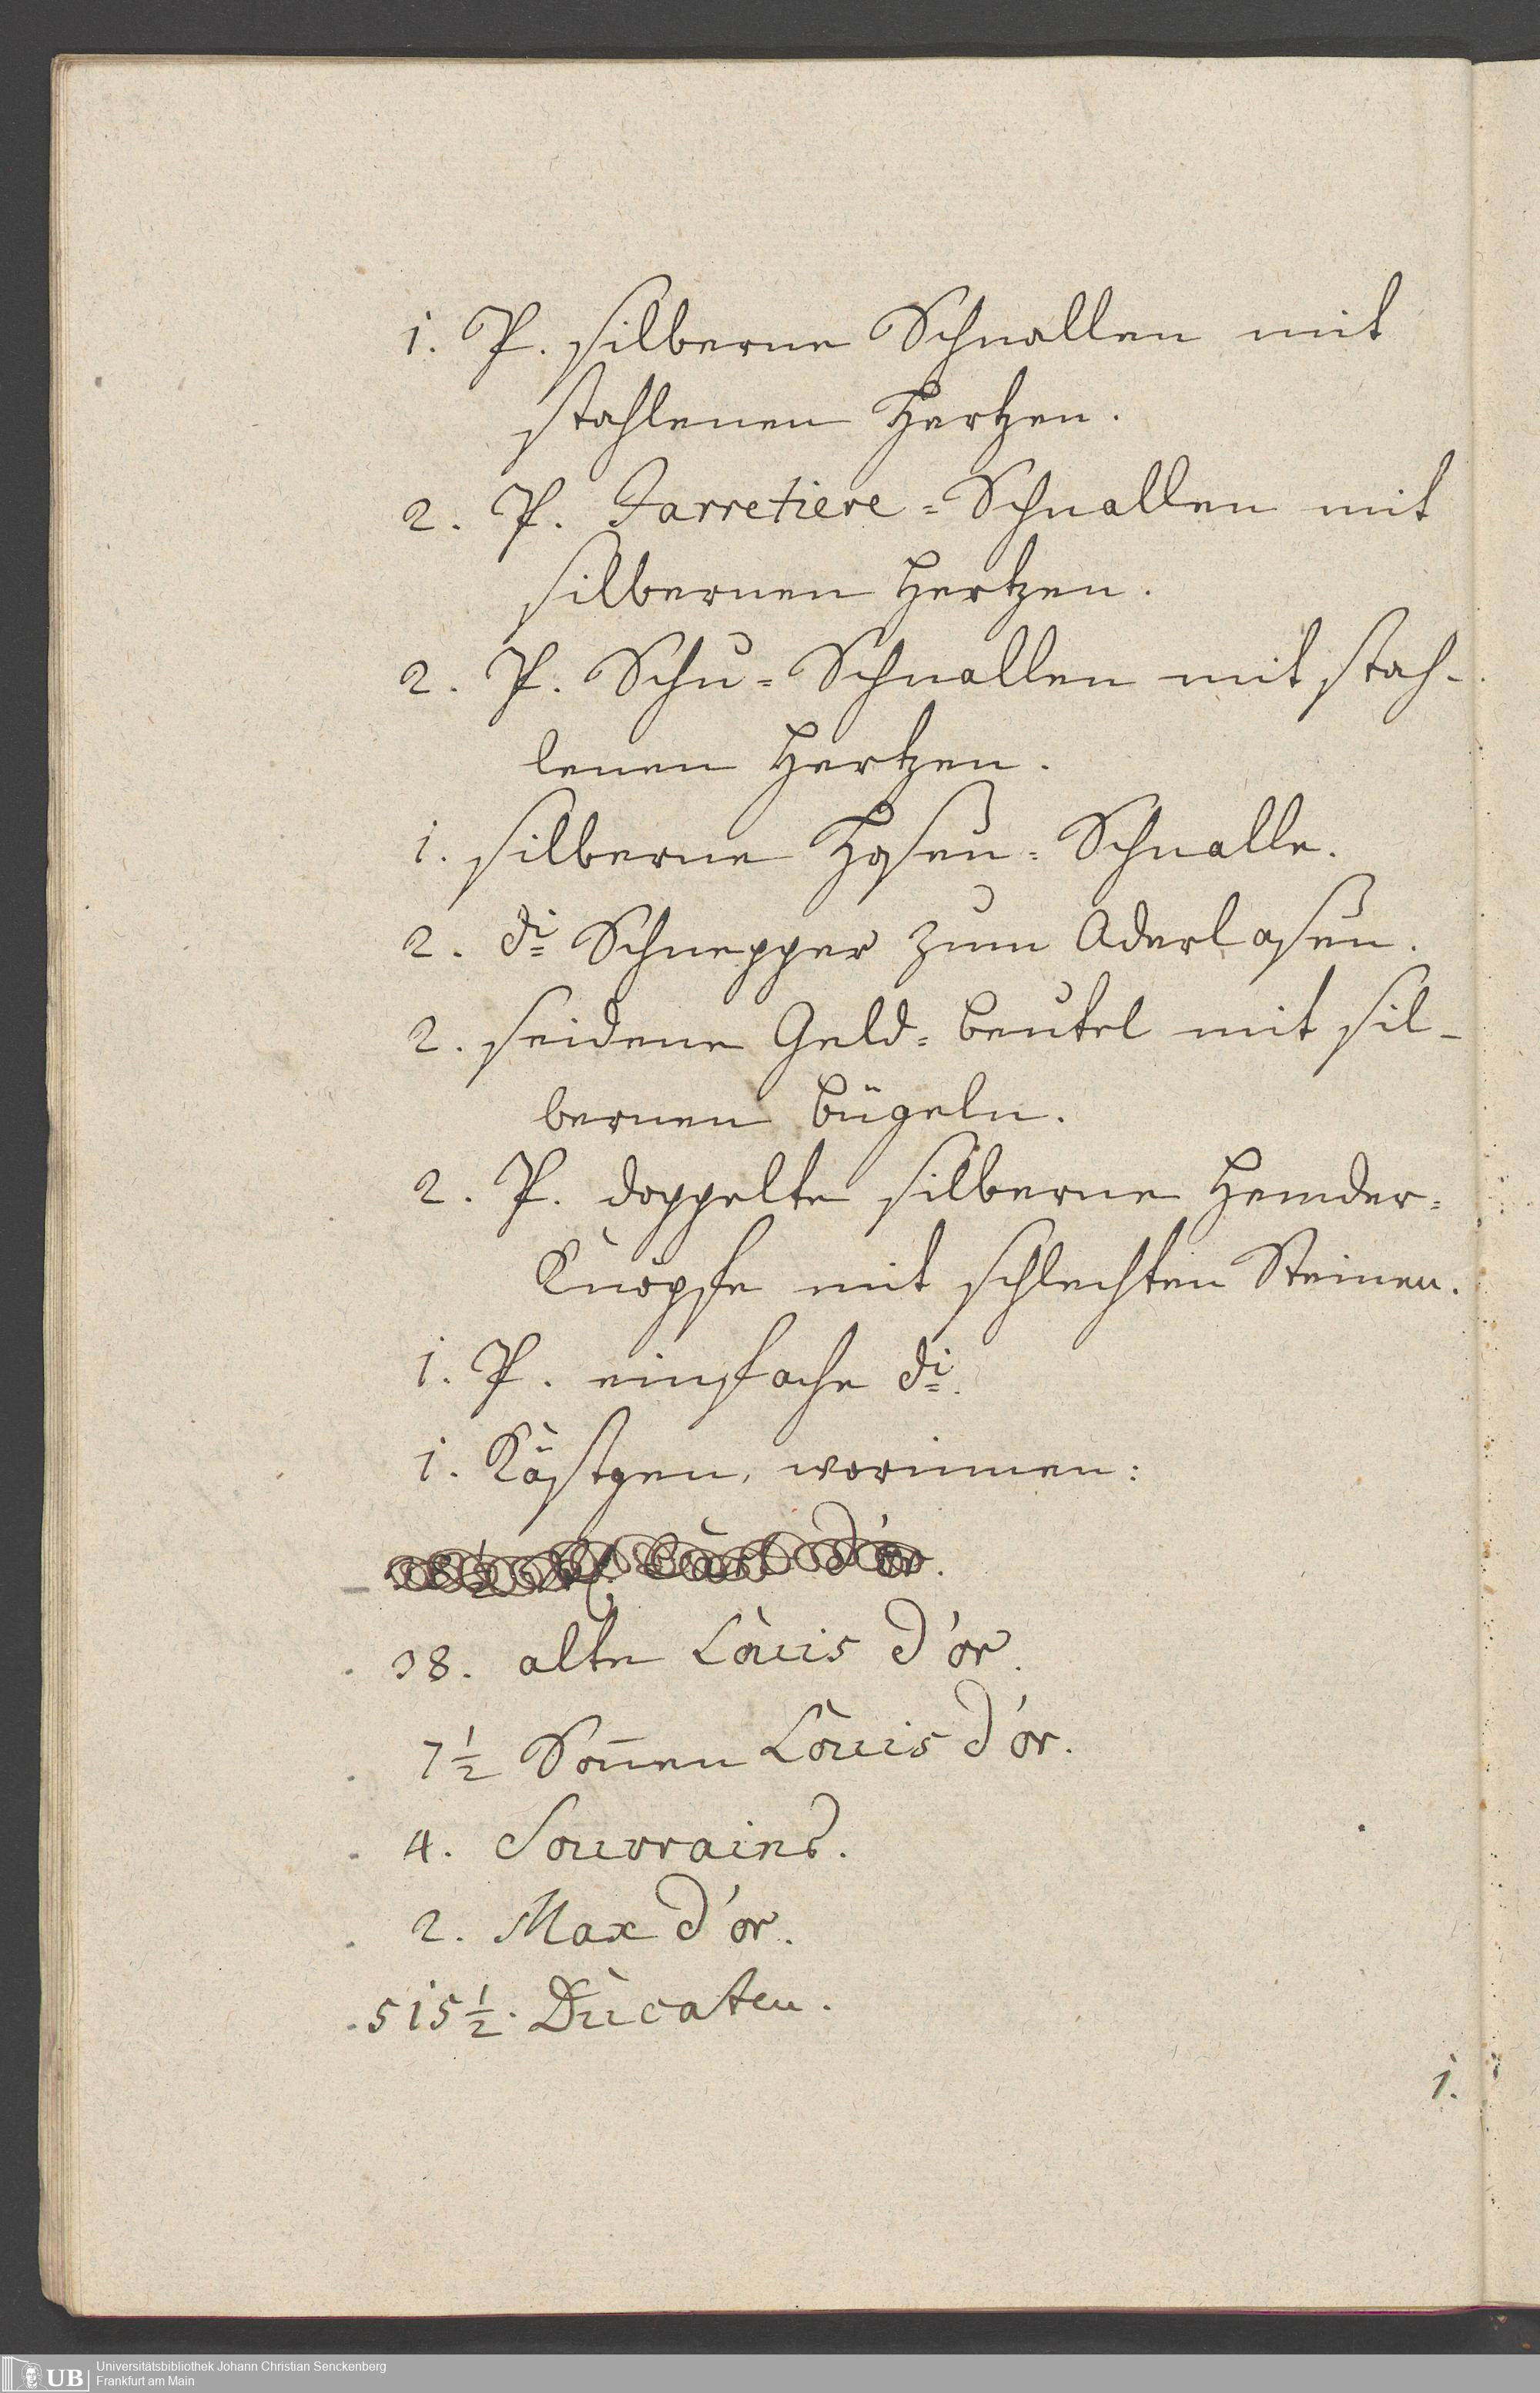 1. P. silberne Schnallen mit
stahlenen Hertzen.
2. P. Jarretiere=Schnallen mit
silbernen Hertzen.
2. P. Schu=Schnallen mit stah-
lenen Hertzen.
1. silberne Hosen=Schnalle.
2. di Schnepper zum Aderlasen.
2. seidene Geld=beutel mit sil-
bernen bügeln.
2. P. doppelte silberne Hemder=
Knöpfe mit schlechten Steinen.
1. P. einfache di.
1. Kästgen, worinnen:
Carl d'or.
38. alte Louis d'or.
7½ Soñen Louis d'or.
4. Souvrains.
2. Max d'or.
515½. Ducaten.
1.
UB
Universitätsbibliothek Johann Christian Senckenberg
Frankfurt am Main